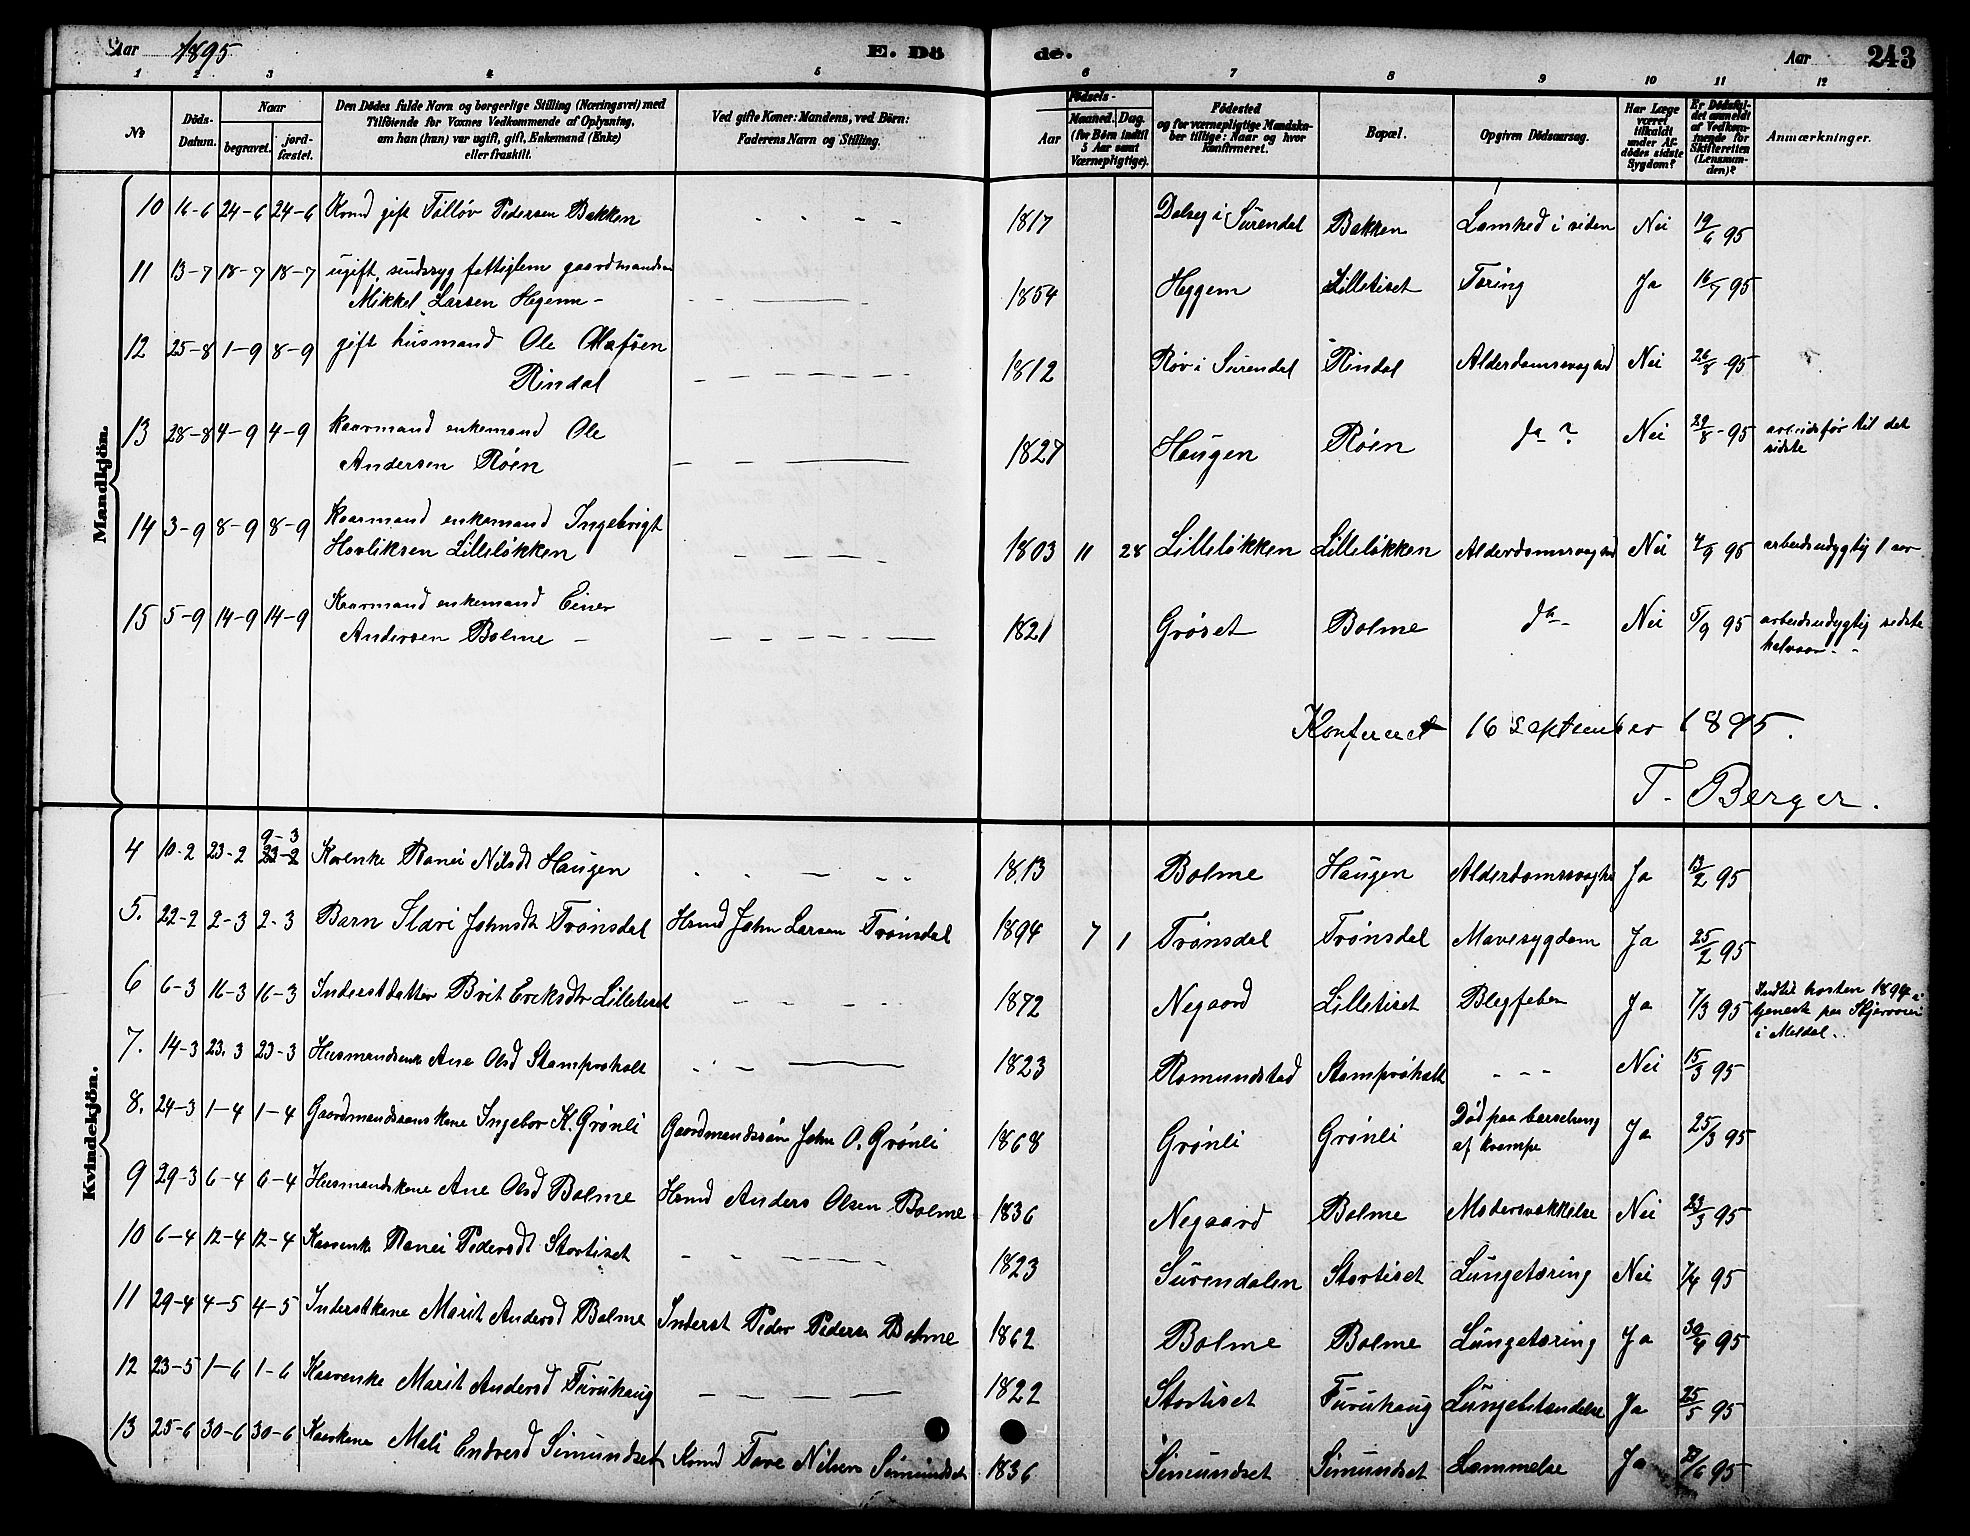 Aar 1895 E. Dö de. Aar 243
1 2 3 4 5 6 7 8 9 10 11 12
No
Döds-Datum.
Naar
begravet.
jord-fæstet.
Den Dödes fulde Navn og borgerlige Stilling (Næringsvei) med
Tilföiende for Voxnes Vedkommende af Oplysning,
om han (hun) var ugift, gift, Enkemand (Enke)
eller fraskilt.
Ved gifte Koner: Mandens, ved Börn:
Faderens Navn og Stilling.
Födsels-
Aar
Maaned. Dag.
(for Börn indtil
5 Aar samt
Værnepligtige).
Födested
og for værnepligtige Mandska-
ber tillige: Naar og hvor
konfirmeret.
Bopæl.
Opgiven Dödsaarsag.
Har Læge
været
tilkaldt
under Af-
dödes sidste
Sygdom?
Er Dödsfal-
det anmeldt
af Vedkom-
mende for
Skifteretten
(Lensman-
den)?
Anmærkninger.
Mandkjön.
10 16-6 24-6 24-6 Kmd gift Tølløv Pedersen Bakken - - - - 1817 Dalsej i Surendal Bakken Lamhed i siden Nei 19/6 95
11 13-7 18-7 18-7 ugift sindssyg fattiglem gaardmandssøn
Mikkel Larsen Hegem - 1854 Heggem Lilletiset Tæring Ja 16/7 95
12 25-8 1-9 8-9 gift husmand Ole Olafsen
Rindal 1812 Røv i Surendal Rindal Alderdomssvaghed Nei 26/8 -95
13 28-8 4-9 4-9 kaarmand enkemand Ole
Andersen Røen 1827 Haugen Røen do ? Nei 29/8 -95 arbeidsfør til det
sidste
14 3-9 8-9 8-9 kaarmand enkemand Ingebrigt
Havliksen Lilleløkken 1803 11 28 Lilleløkken Lilleløkken Alderdomssvaghed Nei 4/9 95 arbeidsudygtig 1 aar
15 5-9 14-9 14-9 Kaarmand enkemand Einer
Andersen Bolme - 1821 Grøset Bolme do - Nei 5/9 95 arbeidsudygtig sidste
halvaar - -
Konfereret 16 September 1895.
T. Berger.
Kvindekjön.
4 10-2 23-2 9-3 23-2 Kaenke Ranei Nilsdt Haugen 1813 Bolme Haugen Alderdomssvaghed Ja 13/2 95
5. 22-2 2-3 2-3 Barn Slavi Johnsdt Trønsdal Hsmd John Larsen Trønsdal 1894 7 1 Trønsdal Trønsdal Mavesygdom Ja 25/2 95
6 6-3 16-3 16-3 Inderstdatter Brit Eriksdtr Lilletiset 1872 Negaard Lilletiset Blegfeber Ja 7/3 95 Indtil høsten 1894 i
tjeneste paa
i Meldal.
7. 14-3 23.3 23-3 Husmandsenke Ane Olsd Stamprøhalt 1823 Romundstad Stamprøhalt - - - Nei 15/3 95
8. 24-3 1-4 1-4 Gaardmandssønskone Ingebor K. Grønli Gaardmandssøn John O. Grønli 1868 Grønli Grønli Død paa barselseng
af krampe Ja 25/3 95
9 29-3 6-4 6-4 Husmandskone Ane Olsd Bolme Hsmd Anders Olsen Bolme 1836 Negaard Bolme Modersvækkelse Nei 23/3 95
10 6-4 12-4 12-4 Kaarenke Ranei Pedersdt Stortiset 1823 Surendalen Stortiset Lungetæring Nei 7/4 95
11 29-4 4-5 4-5 Inderstkone Marit Andersd Bolme Inderst Peder Pedersen Bolme 1862 Bolme Bolme Lungetæring Ja 30/4 95
12 23-5 1-6 1-6 Kaarenke Marit Andersd Furuhaug 1822 Stortiset Furuhaug Lungebetændelse Ja 25/5 95
13 25-6 30-6 30-6 Kaarkone Mali Endresd Simundset Kmd Tore Nilsen Simundset 1836 Simundset Simundset Lammelse Ja 27/6 95